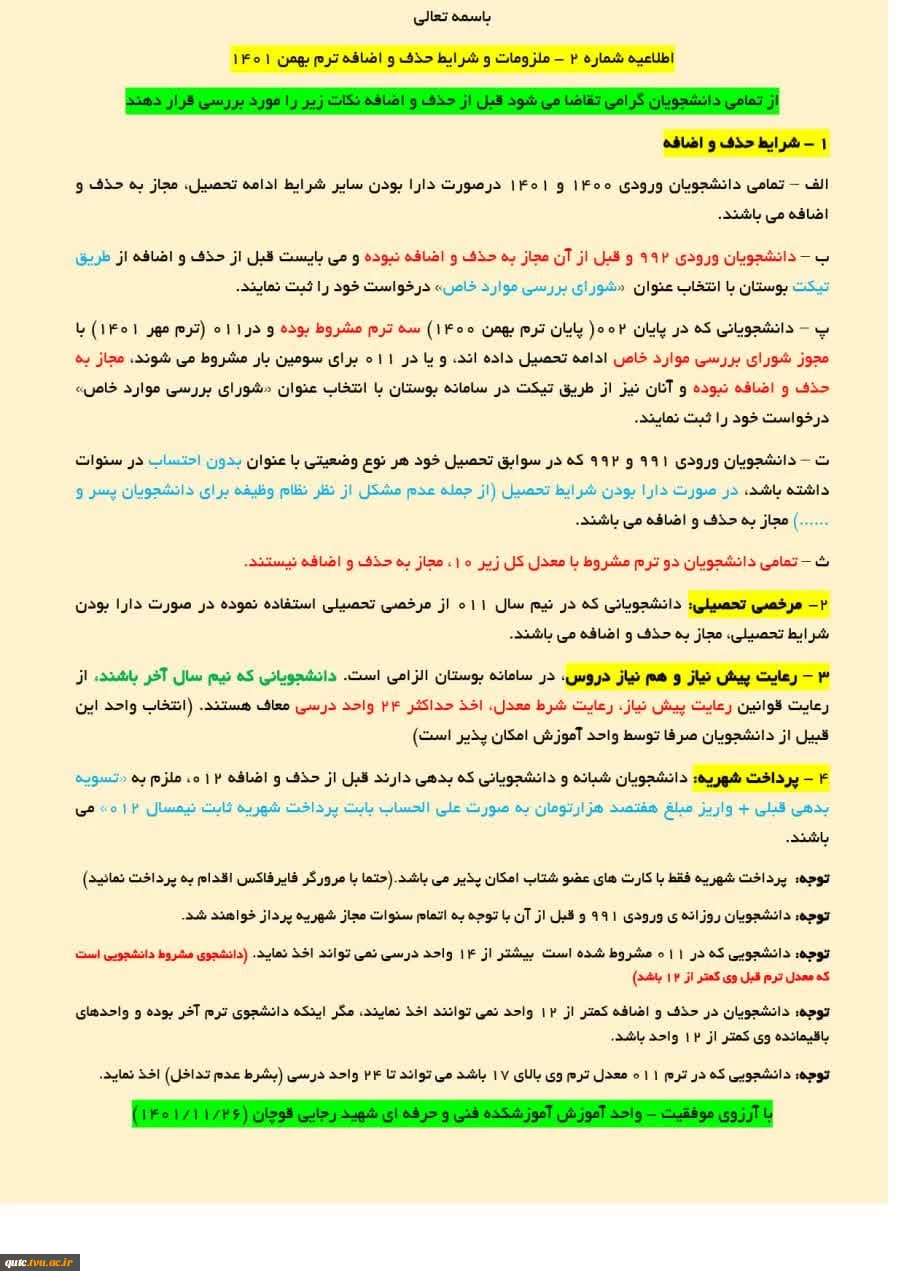 باسمه تعالی
اطلاعیه شماره ۲ – ملزومات و شرایط حذف و اضافه ترم بهمن ۱۴۰۱
از تمامی دانشجویان گرامی تقاضا می شود قبل از حذف و اضافه نکات زیر را مورد بررسی قرار دهند
۱ – شرایط حذف و اضافه
الف – تمامی دانشجویان ورودی ۱۴۰۰ و ۱۴۰۱ درصورت دارا بودن سایر شرایط ادامه تحصیل، مجاز به حذف و
اضافه می باشند.
ب – دانشجویان ورودی ۹۹۲ و قبل از آن مجاز به حذف و اضافه نبوده و می بایست قبل از حذف و اضافه از طریق
تیکت بوستان با انتخاب عنوان «شورای بررسی موارد خاص» درخواست خود را ثبت نمایند.
پ – دانشجویانی که در پایان ۰۰۲( پایان ترم بهمن ۱۴۰۰) سه ترم مشروط بوده و در۰۱۱ (ترم مهر ۱۴۰۱) با
مجوز شورای بررسی موارد خاص ادامه تحصیل داده اند، و یا در ۰۱۱ برای سومین بار مشروط می شوند، مجاز به
حذف و اضافه نبوده و آنان نیز از طریق تیکت در سامانه بوستان با انتخاب عنوان «شورای بررسی موارد خاص»
درخواست خود را ثبت نمایند.
ت – دانشجویان ورودی ۹۹۱ و ۹۹۲ که در سوابق تحصیل خود هر نوع وضعیتی با عنوان بدون احتساب در سنوات
داشته باشد، در صورت دارا بودن شرایط تحصیل (از جمله عدم مشکل از نظر نظام وظیفه برای دانشجویان پسر و
......) مجاز به حذف و اضافه می باشند.
ث – تمامی دانشجویان دو ترم مشروط با معدل کل زیر ۱۰، مجاز به حذف و اضافه نیستند.
۲- مرخصی تحصیلی: دانشجویانی که در نیم سال ۰۱۱ از مرخصی تحصیلی استفاده نموده در صورت دارا بودن
شرایط تحصیلی، مجاز به حذف و اضافه می باشند.
۳ – رعایت پیش نیاز و هم نیاز دروس، در سامانه بوستان الزامی است. دانشجویانی که نیم سال آخر باشند، از
رعایت قوانین رعایت پیش نیاز، رعایت شرط معدل، اخذ حداکثر ۲۴ واحد درسی معاف هستند. (انتخاب واحد این
قبیل از دانشجویان صرفا توسط واحد آموزش امکان پذیر است)
۴ – پرداخت شهریه: دانشجویان شبانه و دانشجویانی که بدهی دارند قبل از حذف و اضافه ۰۱۲، ملزم به «تسویه
بدهی قبلی + واریز مبلغ هفتصد هزارتومان به صورت علی الحساب بابت پرداخت شهریه ثابت نیمسال ۰۱۲» می
باشند.
توجه: پرداخت شهریه فقط با کارت های عضو شتاب امکان پذیر می باشد.(حتما با مرورگر فایرفاکس اقدام به پرداخت نمائید)
توجه: دانشجویان روزانه ی ورودی ۹۹۱ و قبل از آن با توجه به اتمام سنوات مجاز شهریه پرداز خواهند شد.
توجه: دانشجویی که در ۰۱۱ مشروط شده است بیشتر از ۱۴ واحد درسی نمی تواند اخذ نماید. (دانشجوی مشروط دانشجویی است
که معدل ترم قبل وی کمتر از ۱۲ باشد)
توجه: دانشجویان در حذف و اضافه کمتر از ۱۲ واحد نمی توانند اخذ نمایند، مگر اینکه دانشجوی ترم آخر بوده و واحدهای
باقیمانده وی کمتر از ۱۲ واحد باشد.
توجه: دانشجویی که در ترم ۰۱۱ معدل ترم وی بالای ۱۷ باشد می تواند تا ۲۴ واحد درسی (بشرط عدم تداخل) اخذ نماید.
با آرزوی موفقیت – واحد آموزش آموزشکده فنی و حرفه ای شهید رجایی قوچان (۱۴۰۱/۱۱/۲۶)
qutc.tvu.ac.ir